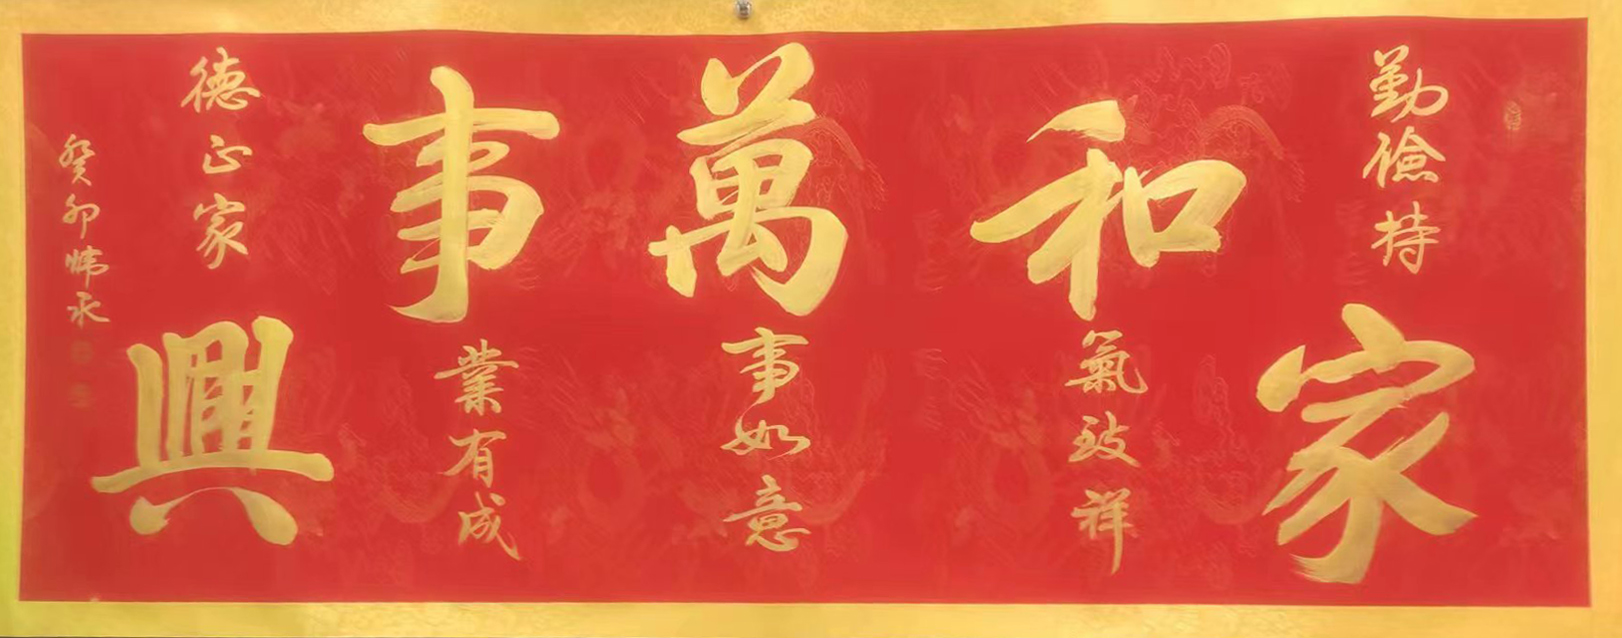 勤儉持家
和氣致祥
萬事如意
事業有成
德正家興
癸卯